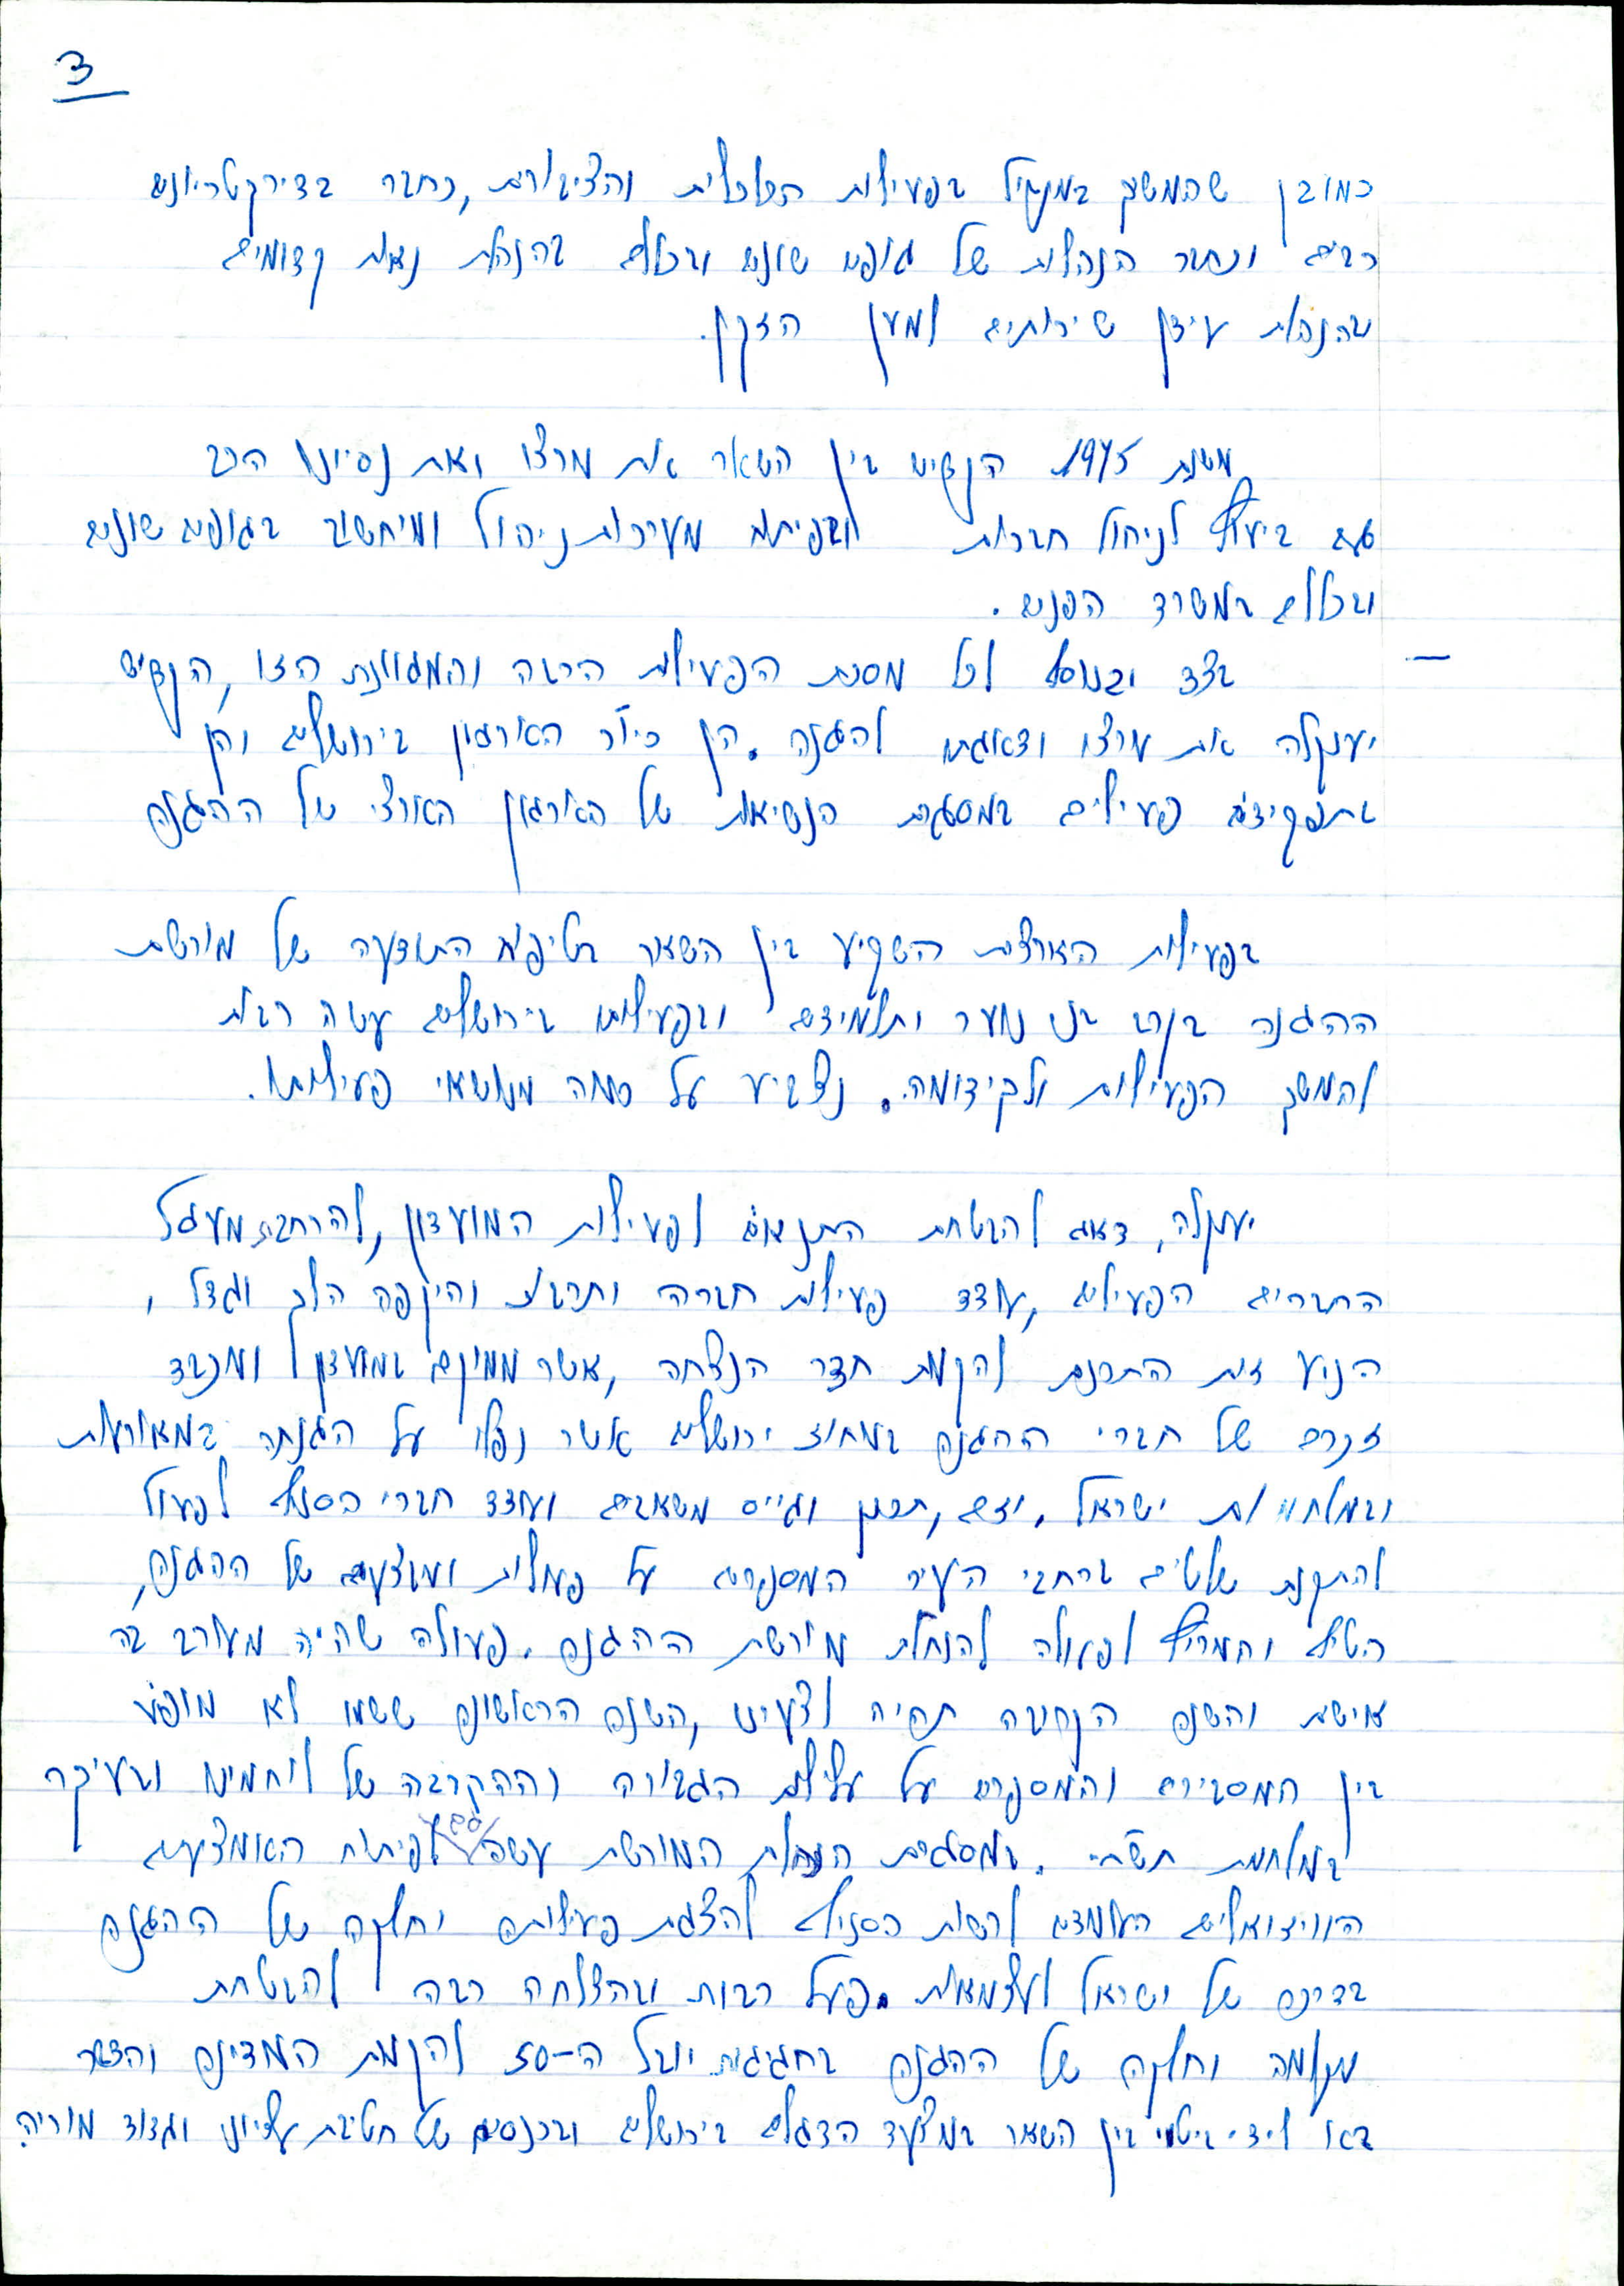 3
כמובן שהמשיך במקביל בפעילות הכלכלית והציבורית, כחבר בדירקטריונים
רבים וכחבר הנהלות של גופים שונים ובכללם בהנהלת נאות קדומים
ובהנהלת עידן שירותים למען הזקן.
משנת 1975 הקדיש בין השאר את מרצו ואת נסיונו הרב
גם ביעוץ לניהול חברות ובפיתוח מערכות ניהול ומיחשוב בגופים שונים
ובכללם במשרד הפנים.
בצד ובנוסף לכל מסכת הפעילות הרבה והמגוונת הזו, הקדיש
יענקלה את מרצו ודאגתו להגנה. הן כיו"ר הארגון בירושלים והן
בתפקידים פעילים במסגרת הנשיאות של הארגון הארצי של ההגנה
בפעילות הארצית השקיע בין השאר בטיפוח התודעה של מורשת
ההגנה בקרב בני נוער ותלמידים ובפעילותו בירושלים עשה רבות
להמשך הפעילות ולקידומה. נצביע על כמה מנושאי פעילותו.
יענקלה, דאג להבטחת התנאים לפעילות המועדון, להרחבת מעגל
החברים הפעילים, עודד פעילות חברה ותרבות והיקפה הלך וגדל,
הניע את התכנית להקמת חדר הנצחה, אשר ממוקם במועדון ומכבד
זכרם של חברי ההגנה במחוז ירושלים אשר נפלו על הגנתה במאורעות
ובמלחמות ישראל. יזם, תכנן וגייס משאבים ועודד חברי הסניף לפעול
להתקנת שלטים ברחבי העיר המספרים על פעולות ומבצעים של ההגנה,
הטיף והמריץ לפעולה להנחלת מורשת ההגנה. פעולה שהיה מעורב בה
אישית והשנה הקרובה תהיה לצערינו, השנה הראשונה ששמו לא מופיע
בין המסבירים והמספרים על עלילות הגבורה וההקרבה של לוחמינו ובעיקר
במלחמת תש"ח. במסגרת הנחלת המורשת עשה גם לפיתוח האמצעים
הווידואלים העומדים לרשות הסניף להצגת פעילותם וחלקה של ההגנה
בדרכה של ישראל לעצמאות. פעל רבות ובהצלחה רבה להבטחת
מקומה וחלקה של ההגנה בחגיגות יובל ה-50 להקמת המדינה והדבר
בא לידי ביטוי בין השאר במצעד הדגלים בירושלים ובכנסים של חטיבת עציוני וגדוד מוריה.